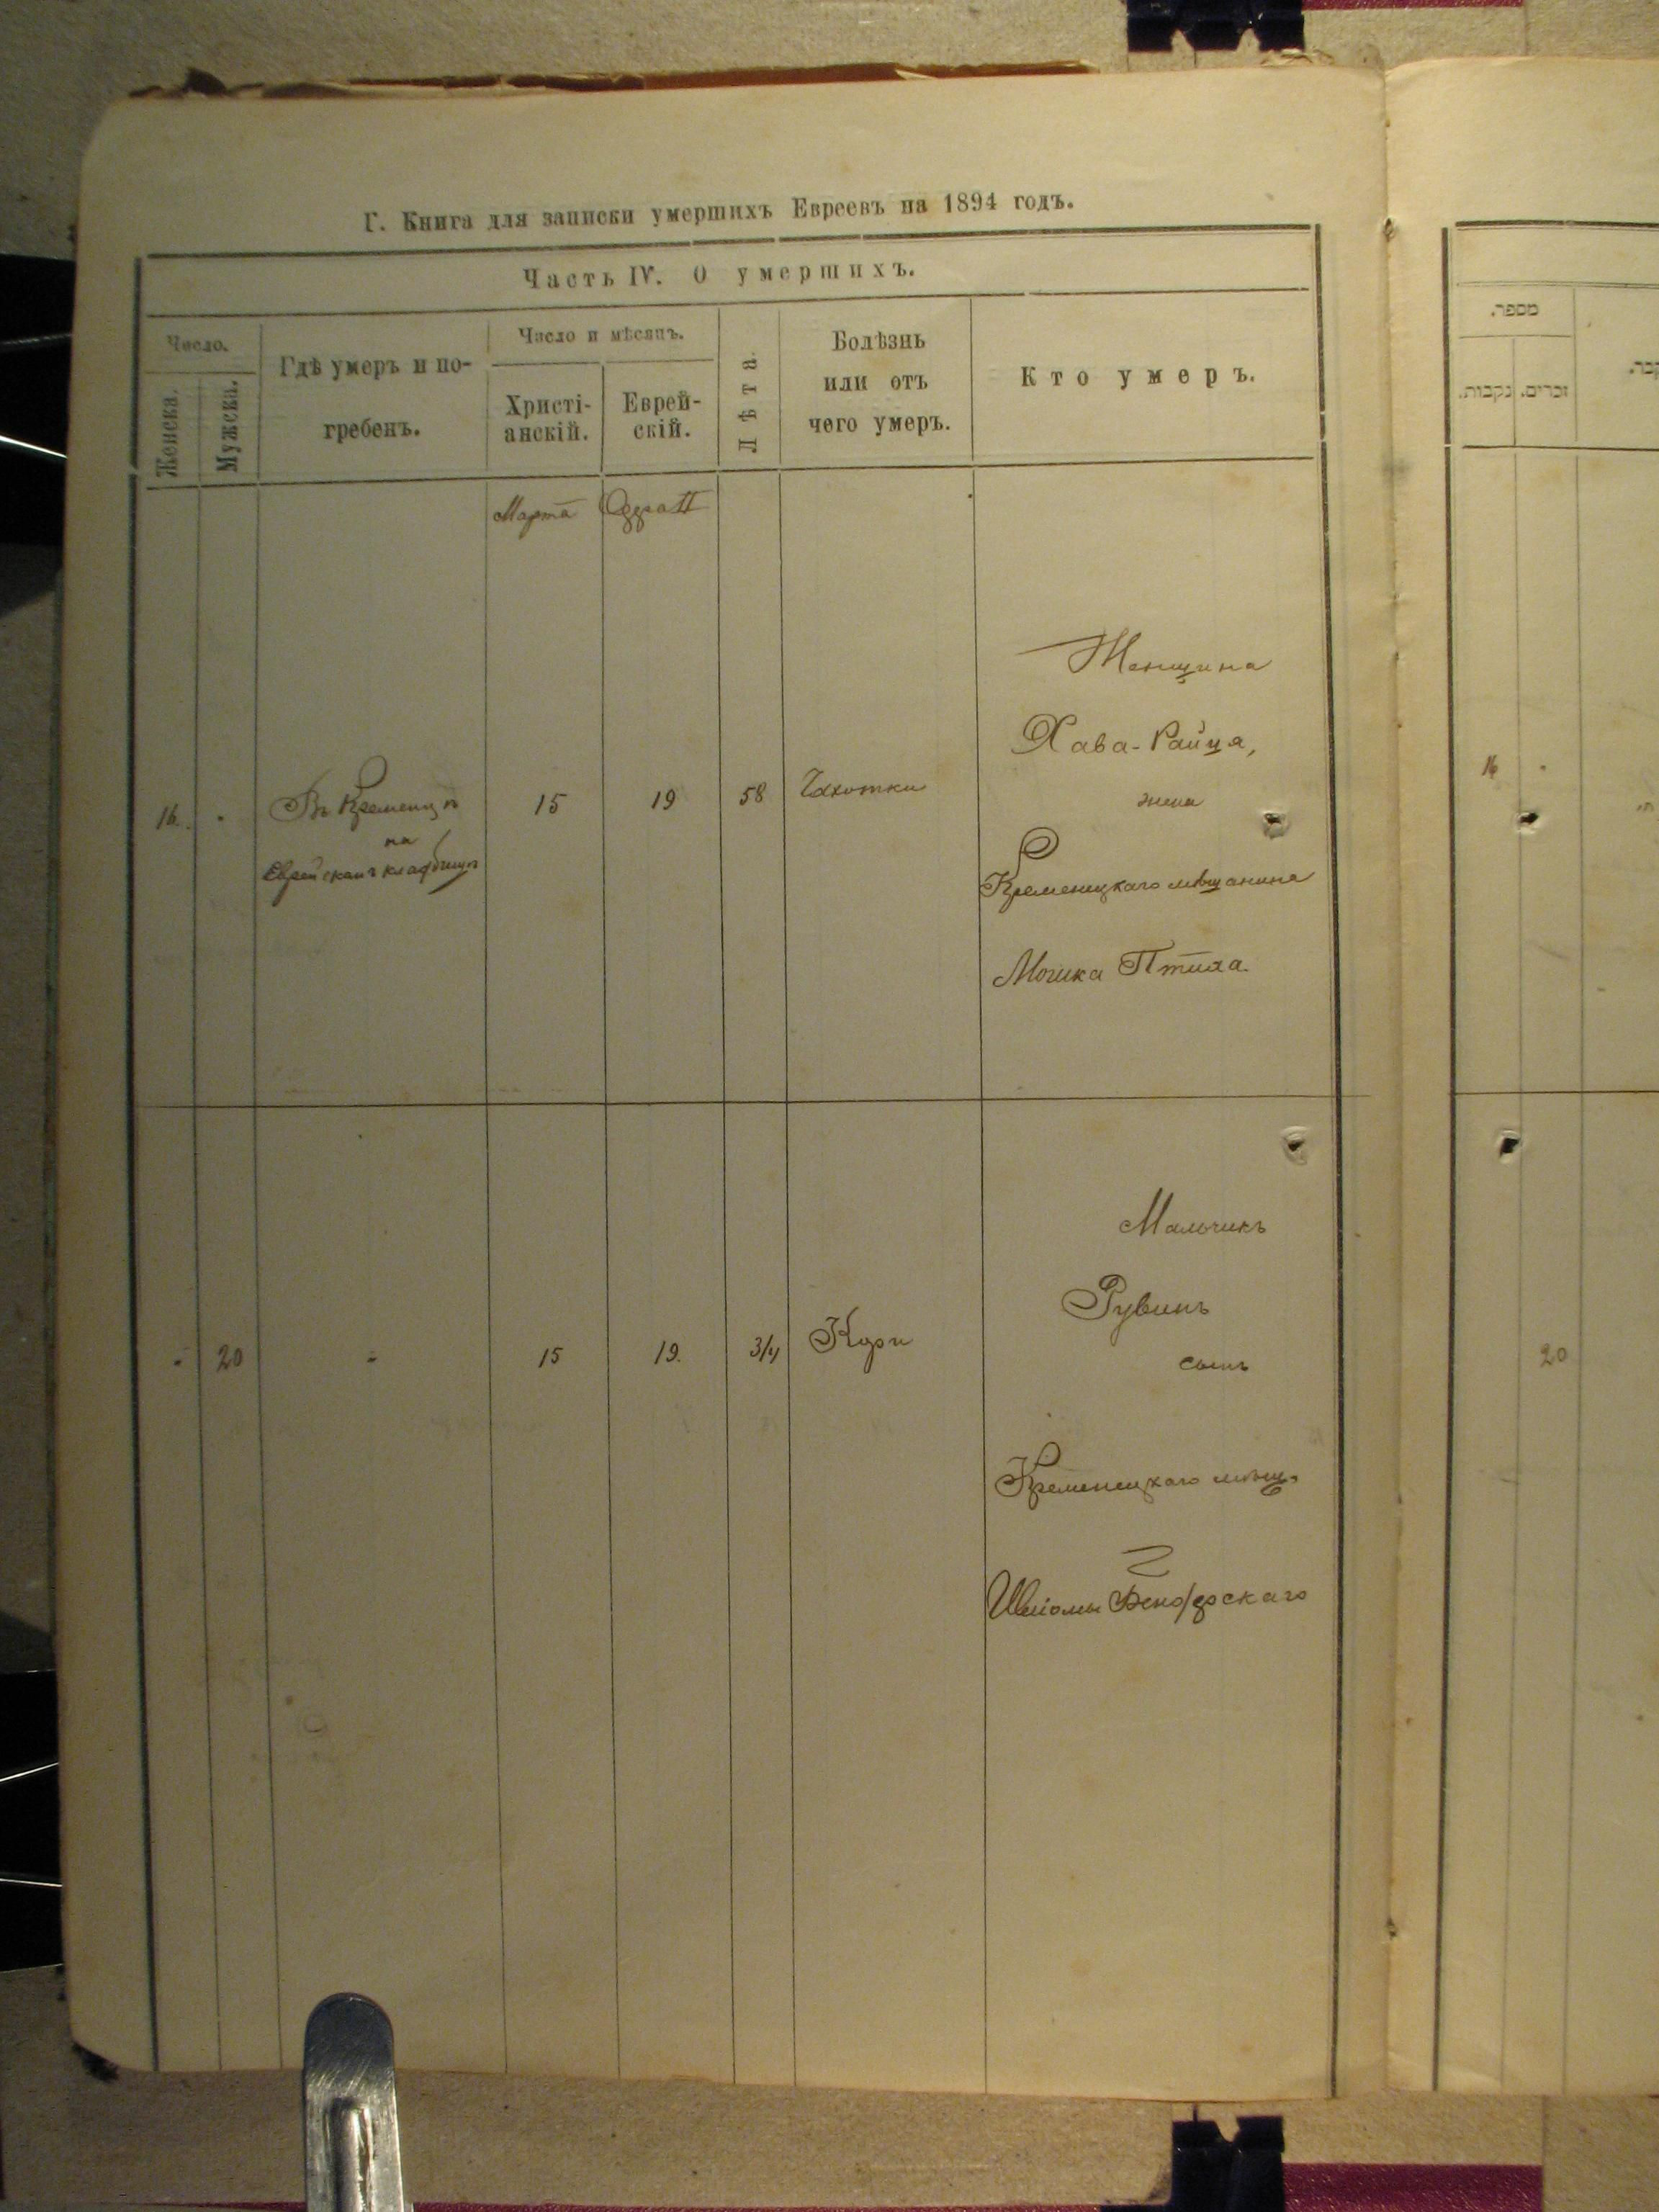 Г. Книга для записки умершихъ Евреевъ на 1894 годъ.
Часть IV. О умершихъ.
Число.
Женска.
Мужска.
Гдѣ умеръ и по-
гребенъ.
Число и мѣсяцъ.
Христі-
анскій.
Еврей-
скій.
Лѣта.
Болѣзнь
или отъ
чего умеръ.
Кто умеръ.
Марта
Одра II
16.
Въ Кременцѣ
на
Еврейскомъ кладбищѣ
15
19
58
Чахотки
Женщина
Хава-Райця,
жена
Кременецкаго мѣщанина
Мошка
20
15
19.
3/4
Кори
Мальчикъ
Рувинъ
сынъ
Кременецкаго мѣщ.
Шліомы
מספר.
נקבות.
זכרים.
16
20